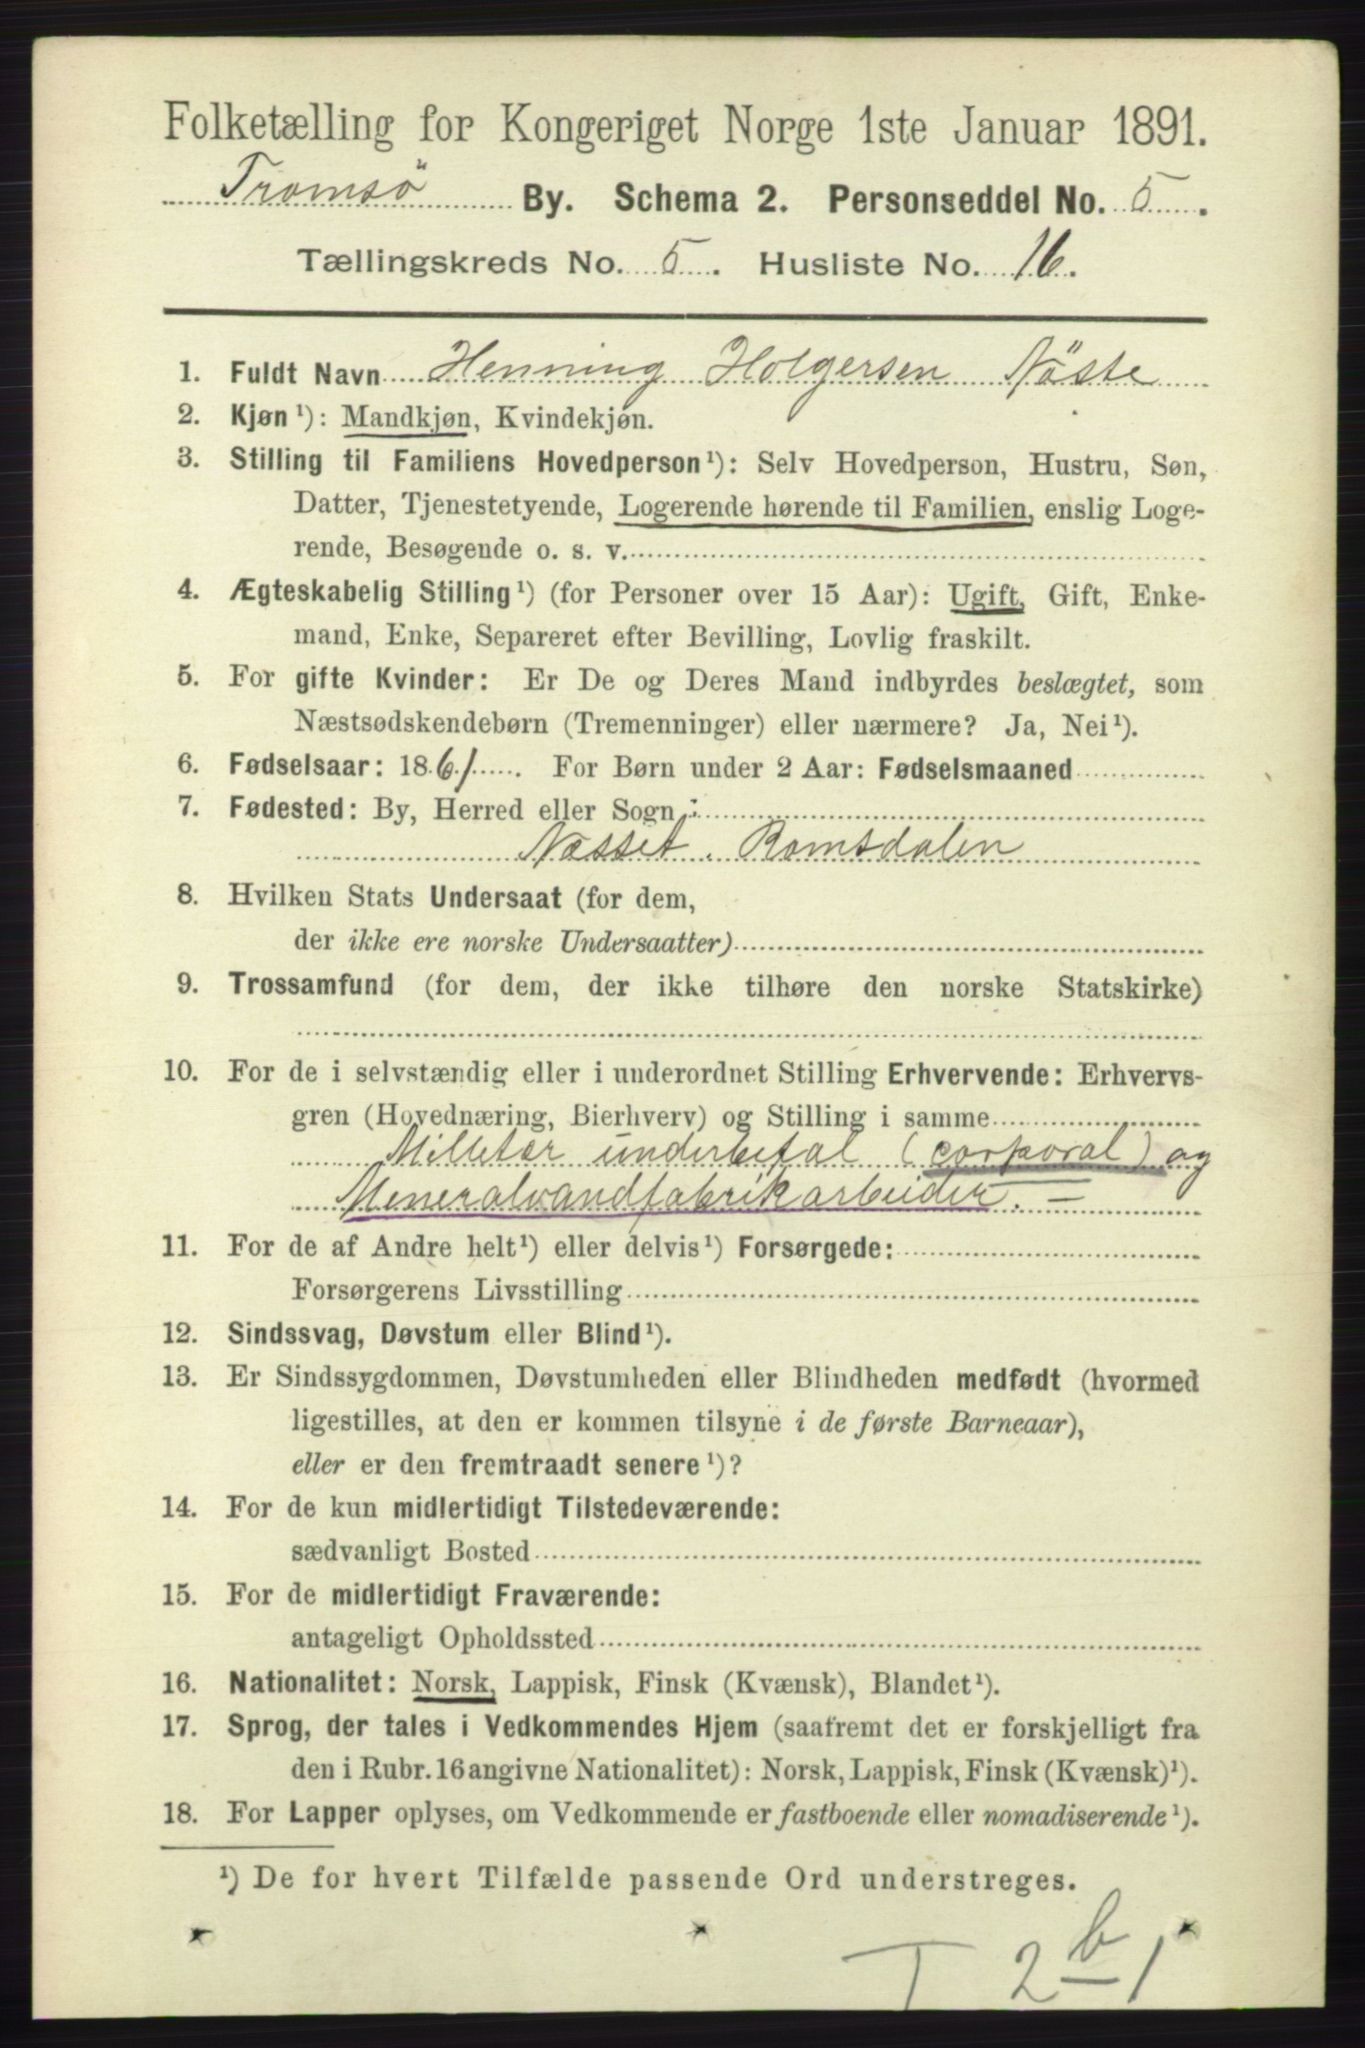 Folketælling for Kongeriget Norge 1ste Januar 1891.
Tromsö By. Schema 2. Personseddel No. 5.
Tællingskreds No. 5. Husliste No. 16.
1. Fuldt Navn Henning Holgersen Nöste
2. Kjøn¹): Mandkjøn, Kvindekjøn.
3. Stilling til Familiens Hovedperson¹): Selv Hovedperson, Hustru, Søn,
Datter, Tjenestetyende, Logerende hørende til Familien, enslig Loge-
rende, Besøgende o. s. v.
4. Ægteskabelig Stilling¹) (for Personer over 15 Aar): Ugift, Gift, Enke-
mand, Enke, Separeret efter Bevilling, Lovlig fraskilt.
5. For gifte Kvinder: Er De og Deres Mand indbyrdes beslægtet, som
Næstsødskendebørn (Tremenninger) eller nærmere? Ja, Nei¹).
6. Fødselsaar: 1861. For Børn under 2 Aar: Fødselsmaaned
7. Fødested: By, Herred eller Sogn:
Næsset. Romsdalen
8. Hvilken Stats Undersaat (for dem,
der ikke ere norske Undersaatter)
9. Trossamfund (for dem, der ikke tilhøre den norske Statskirke)
10. For de i selvstændig eller i underordnet Stilling Erhvervende: Erhvervs-
gren (Hovednæring, Bierhverv) og Stilling i samme
Milletær underbefal (corporal) og
Meneralvandfabrikarbeider. —
11. For de af Andre helt¹) eller delvis¹) Forsørgede:
Forsørgerens Livsstilling
12. Sindssvag, Døvstum eller Blind¹).
13. Er Sindssygdommen, Døvstumheden eller Blindheden medfødt (hvormed
ligestilles, at den er kommen tilsyne i de første Barneaar),
eller er den fremtraadt senere¹)?
14. For de kun midlertidigt Tilstedeværende:
sædvanligt Bosted
15. For de midlertidigt Fraværende:
antageligt Opholdssted
16. Nationalitet: Norsk, Lappisk, Finsk (Kvænsk), Blandet¹).
17. Sprog, der tales i Vedkommendes Hjem (saafremt det er forskjelligt fra
den i Rubr. 16 angivne Nationalitet): Norsk, Lappisk, Finsk (Kvænsk)¹).
18. For Lapper oplyses, om Vedkommende er fastboende eller nomadiserende¹).
¹) De for hvert Tilfælde passende Ord understreges.
T 2 b 1